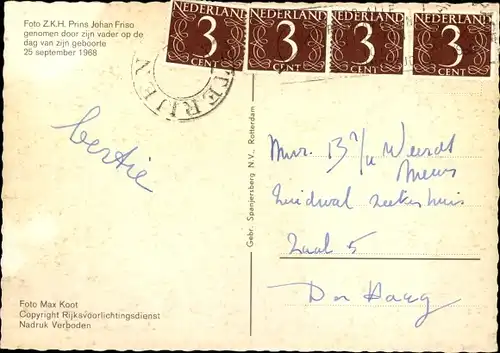 Foto Z.K.H. Prins Johan Friso
genomen door zijn vader op de
dag van zijn geboorte
25 september 1968
NEDERLAND NEDERLAND NEDERLAND NEDERLAND
3 3 3 3
CENT CENT CENT CENT
bertie
Gebr. Spanjersberg N.V., Rotterdam
Mevr. B v/d Weerdt
Zuidwal ziekenhuis
Zaal 5
Den Haag
Foto Max Koot
Copyright Rijksvoorlichtingsdienst
Nadruk Verboden